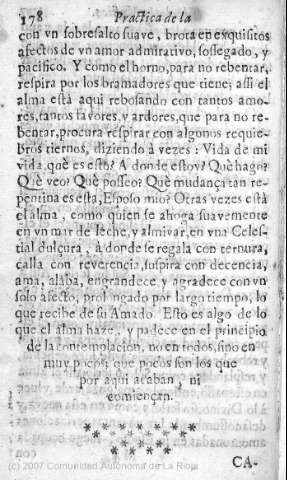 178 Practica de la
con vn sobresalto suave, brota en exquisitos
afectos de vn amor admirativo, sossegado, y
pacifico. Y como el horno, para no rebentar,
respira por los bramadores que tiene; assi el
alma està aqui rebosando con tantos amo-
res, tantos favores, y ardores, que para no re-
bentar, procura respirar con algunos requie-
bros tiernos, diziendo à vezes: Vida de mi
vida, què es esto? A donde estoy? Què hago?
Què veo? Què posseo? Què mudança tan re-
pentina es esta, Esposo mio? Otras vezes està
el alma, como quien se ahoga suavemente
en vn mar de leche, y almivar, en vna Celes-
tial dulçura, à donde se regala con ternura,
calla con reverencia, suspira con decencia,
ama, alaba, engrandece, y agradece con vn
solo afecto, prolongado por largo tiempo, lo
que recibe de su Amado. Esto es algo de lo
que el alma haze, y padece en el principio
de la contemplacion, no en todos, sino en
muy pocos; que pocos son los que
por aqui acaban, ni
comiençan.
CA-
(c) 2007 Comunidad Autónoma de La Rioja